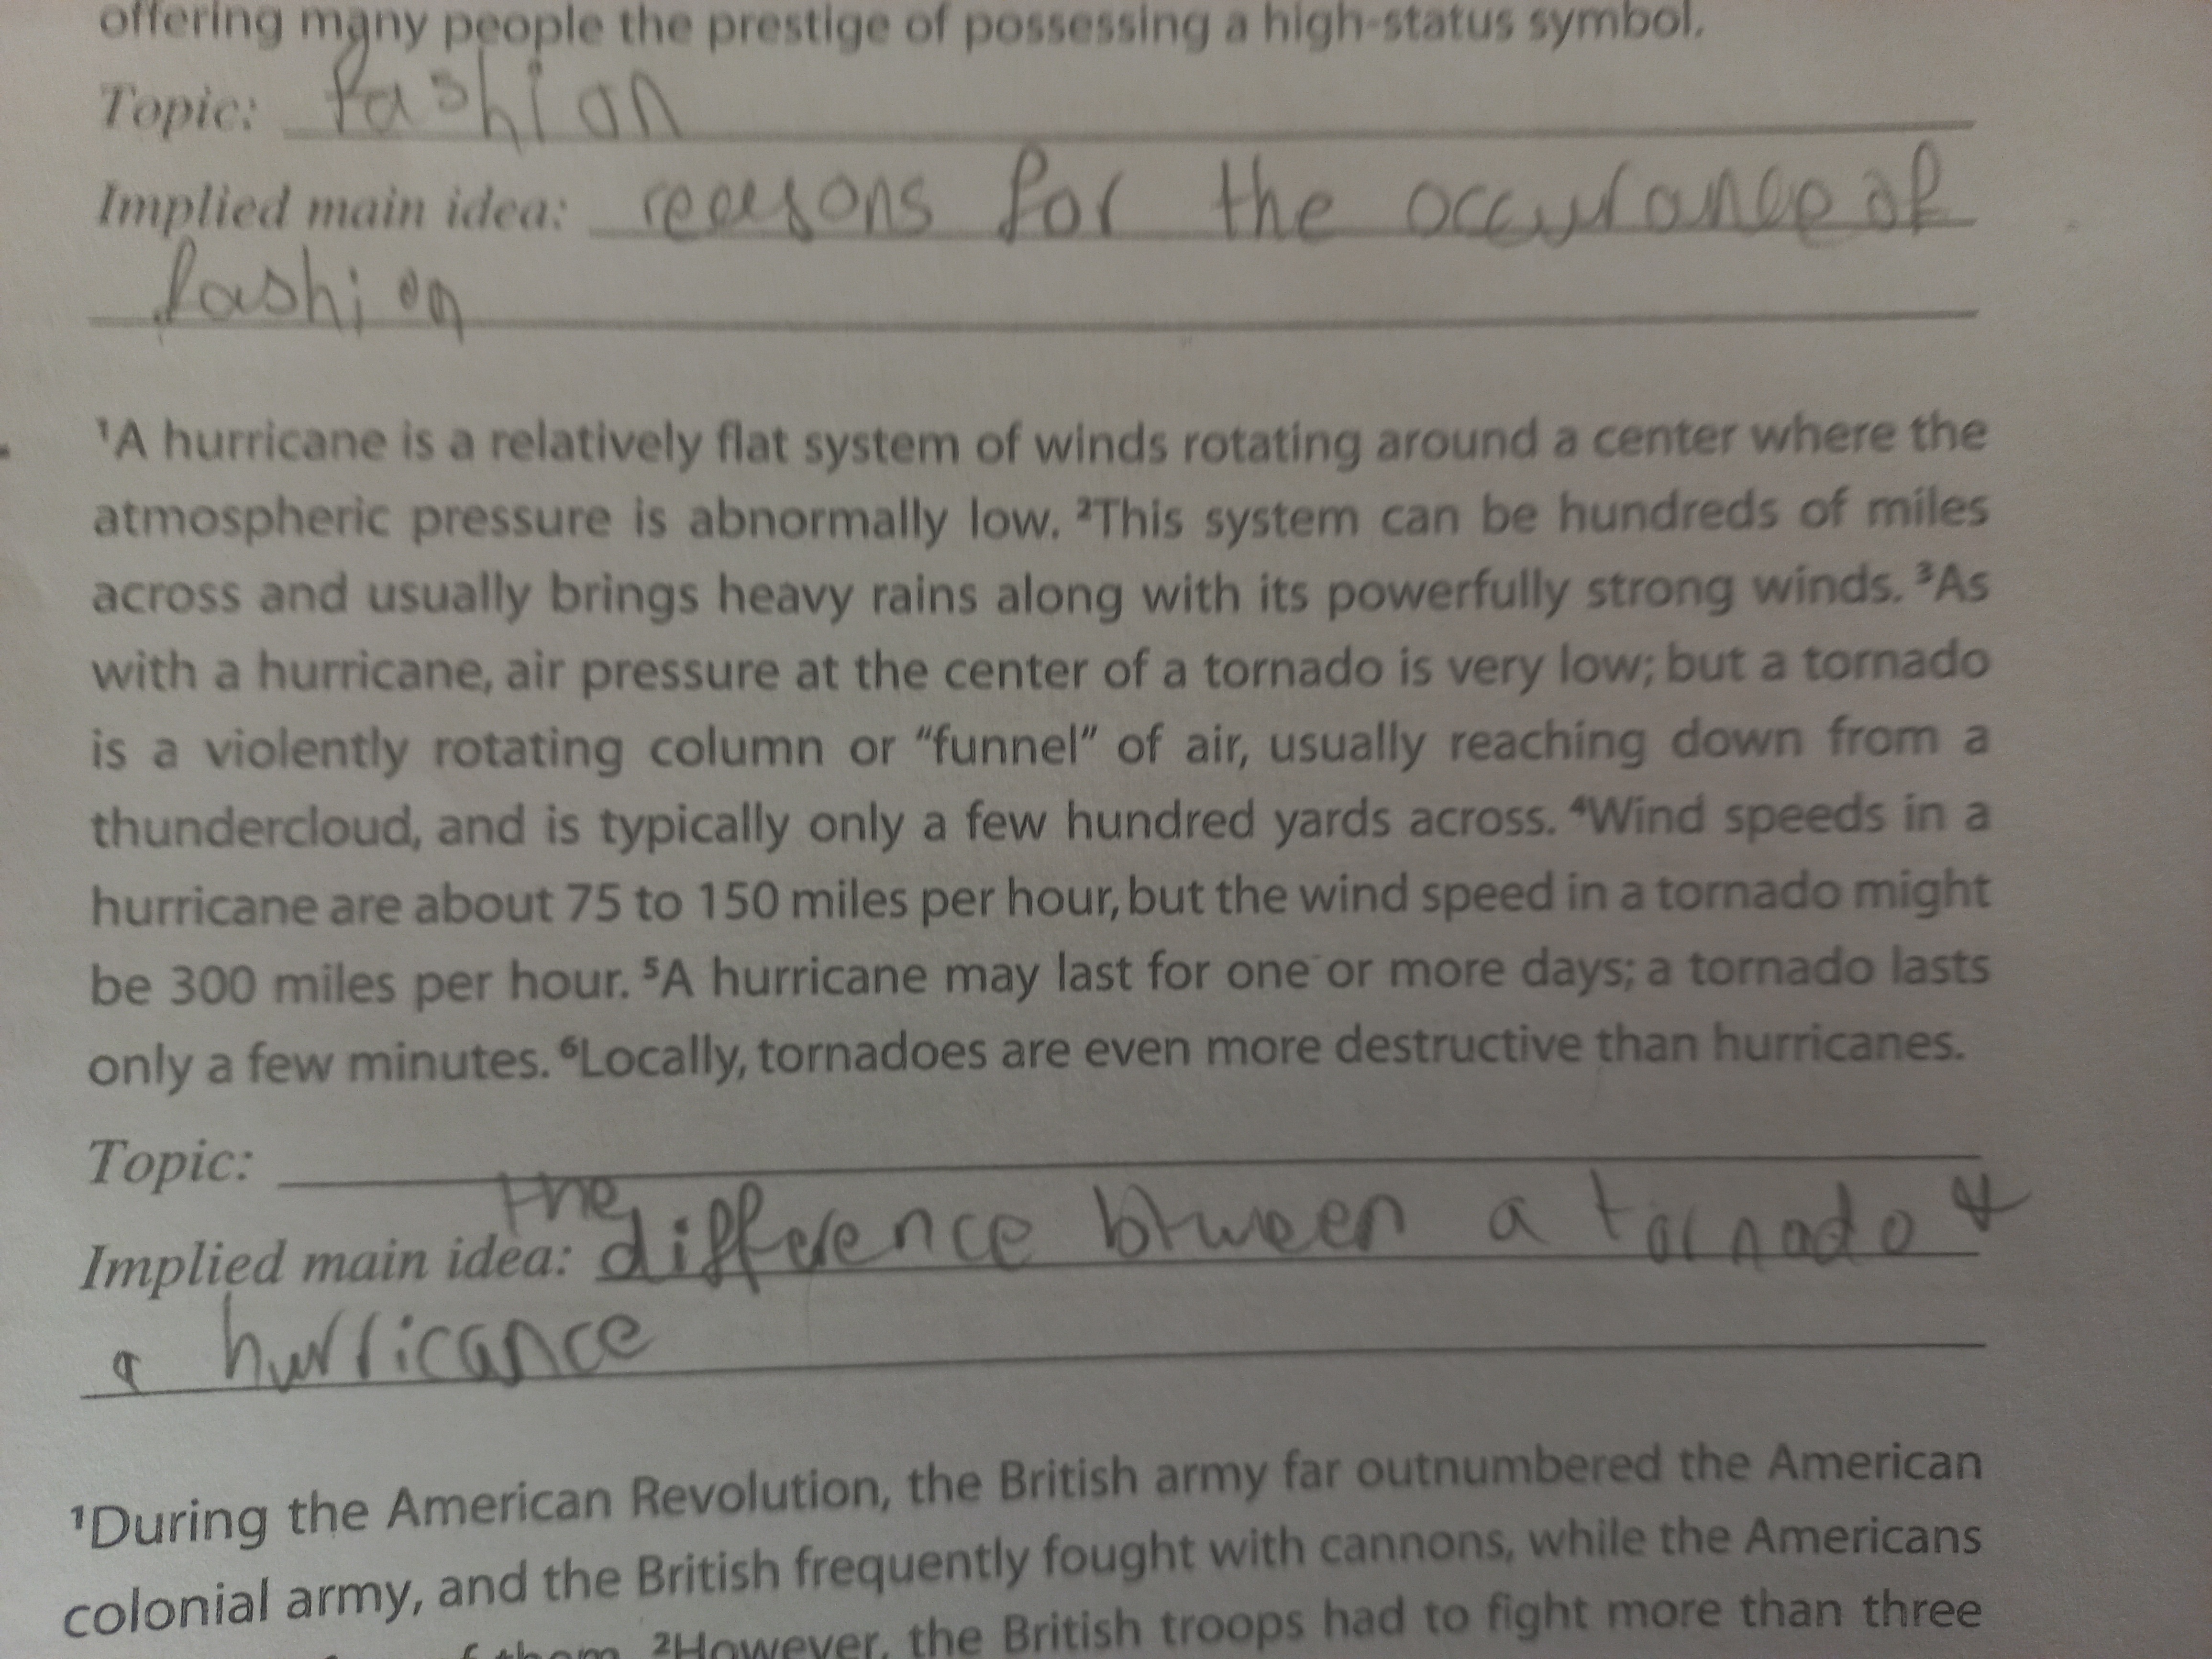 offering many people the prestige of possessing a high-status symbol.
Topic: fashion
Implied main idea: reasons for the occurance of
fashion
¹A hurricane is a relatively flat system of winds rotating around a center where the
atmospheric pressure is abnormally low. ²This system can be hundreds of miles
across and usually brings heavy rains along with its powerfully strong winds. ³As
with a hurricane, air pressure at the center of a tornado is very low; but a tornado
is a violently rotating column or “funnel” of air, usually reaching down from a
thundercloud, and is typically only a few hundred yards across. ⁴Wind speeds in a
hurricane are about 75 to 150 miles per hour, but the wind speed in a tornado might
be 300 miles per hour. ⁵A hurricane may last for one or more days; a tornado lasts
only a few minutes. ⁶Locally, tornadoes are even more destructive than hurricanes.
Topic:
Implied main idea: the difference btween a tornado &
a hurricance
¹During the American Revolution, the British army far outnumbered the American
colonial army, and the British frequently fought with cannons, while the Americans
of them. ²However, the British troops had to fight more than three